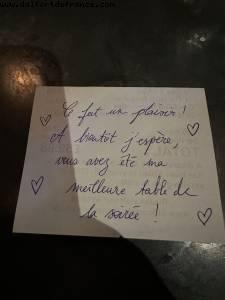 www.dalfortdefrance.com
Ce fut un plaisir !
A bientôt j'espère,
vous avez été ma
meilleure table de
la soirée !
TOTAL